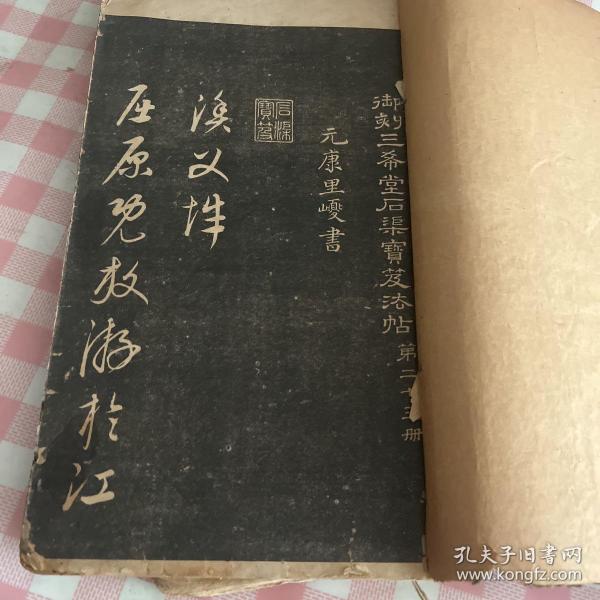 御刻三希堂石渠寶笈法帖 第二十三册
元康里巎書
石渠寶笈
漁父辞
屈原既放游於江
孔夫子旧书网
www.kongfz.com